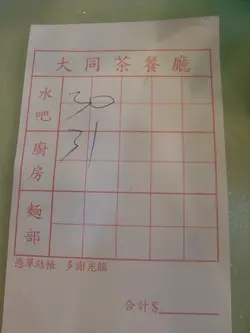 大同茶餐廳
水吧 30
廚房 31
麵部
憑單結帳 多謝光臨
合計$